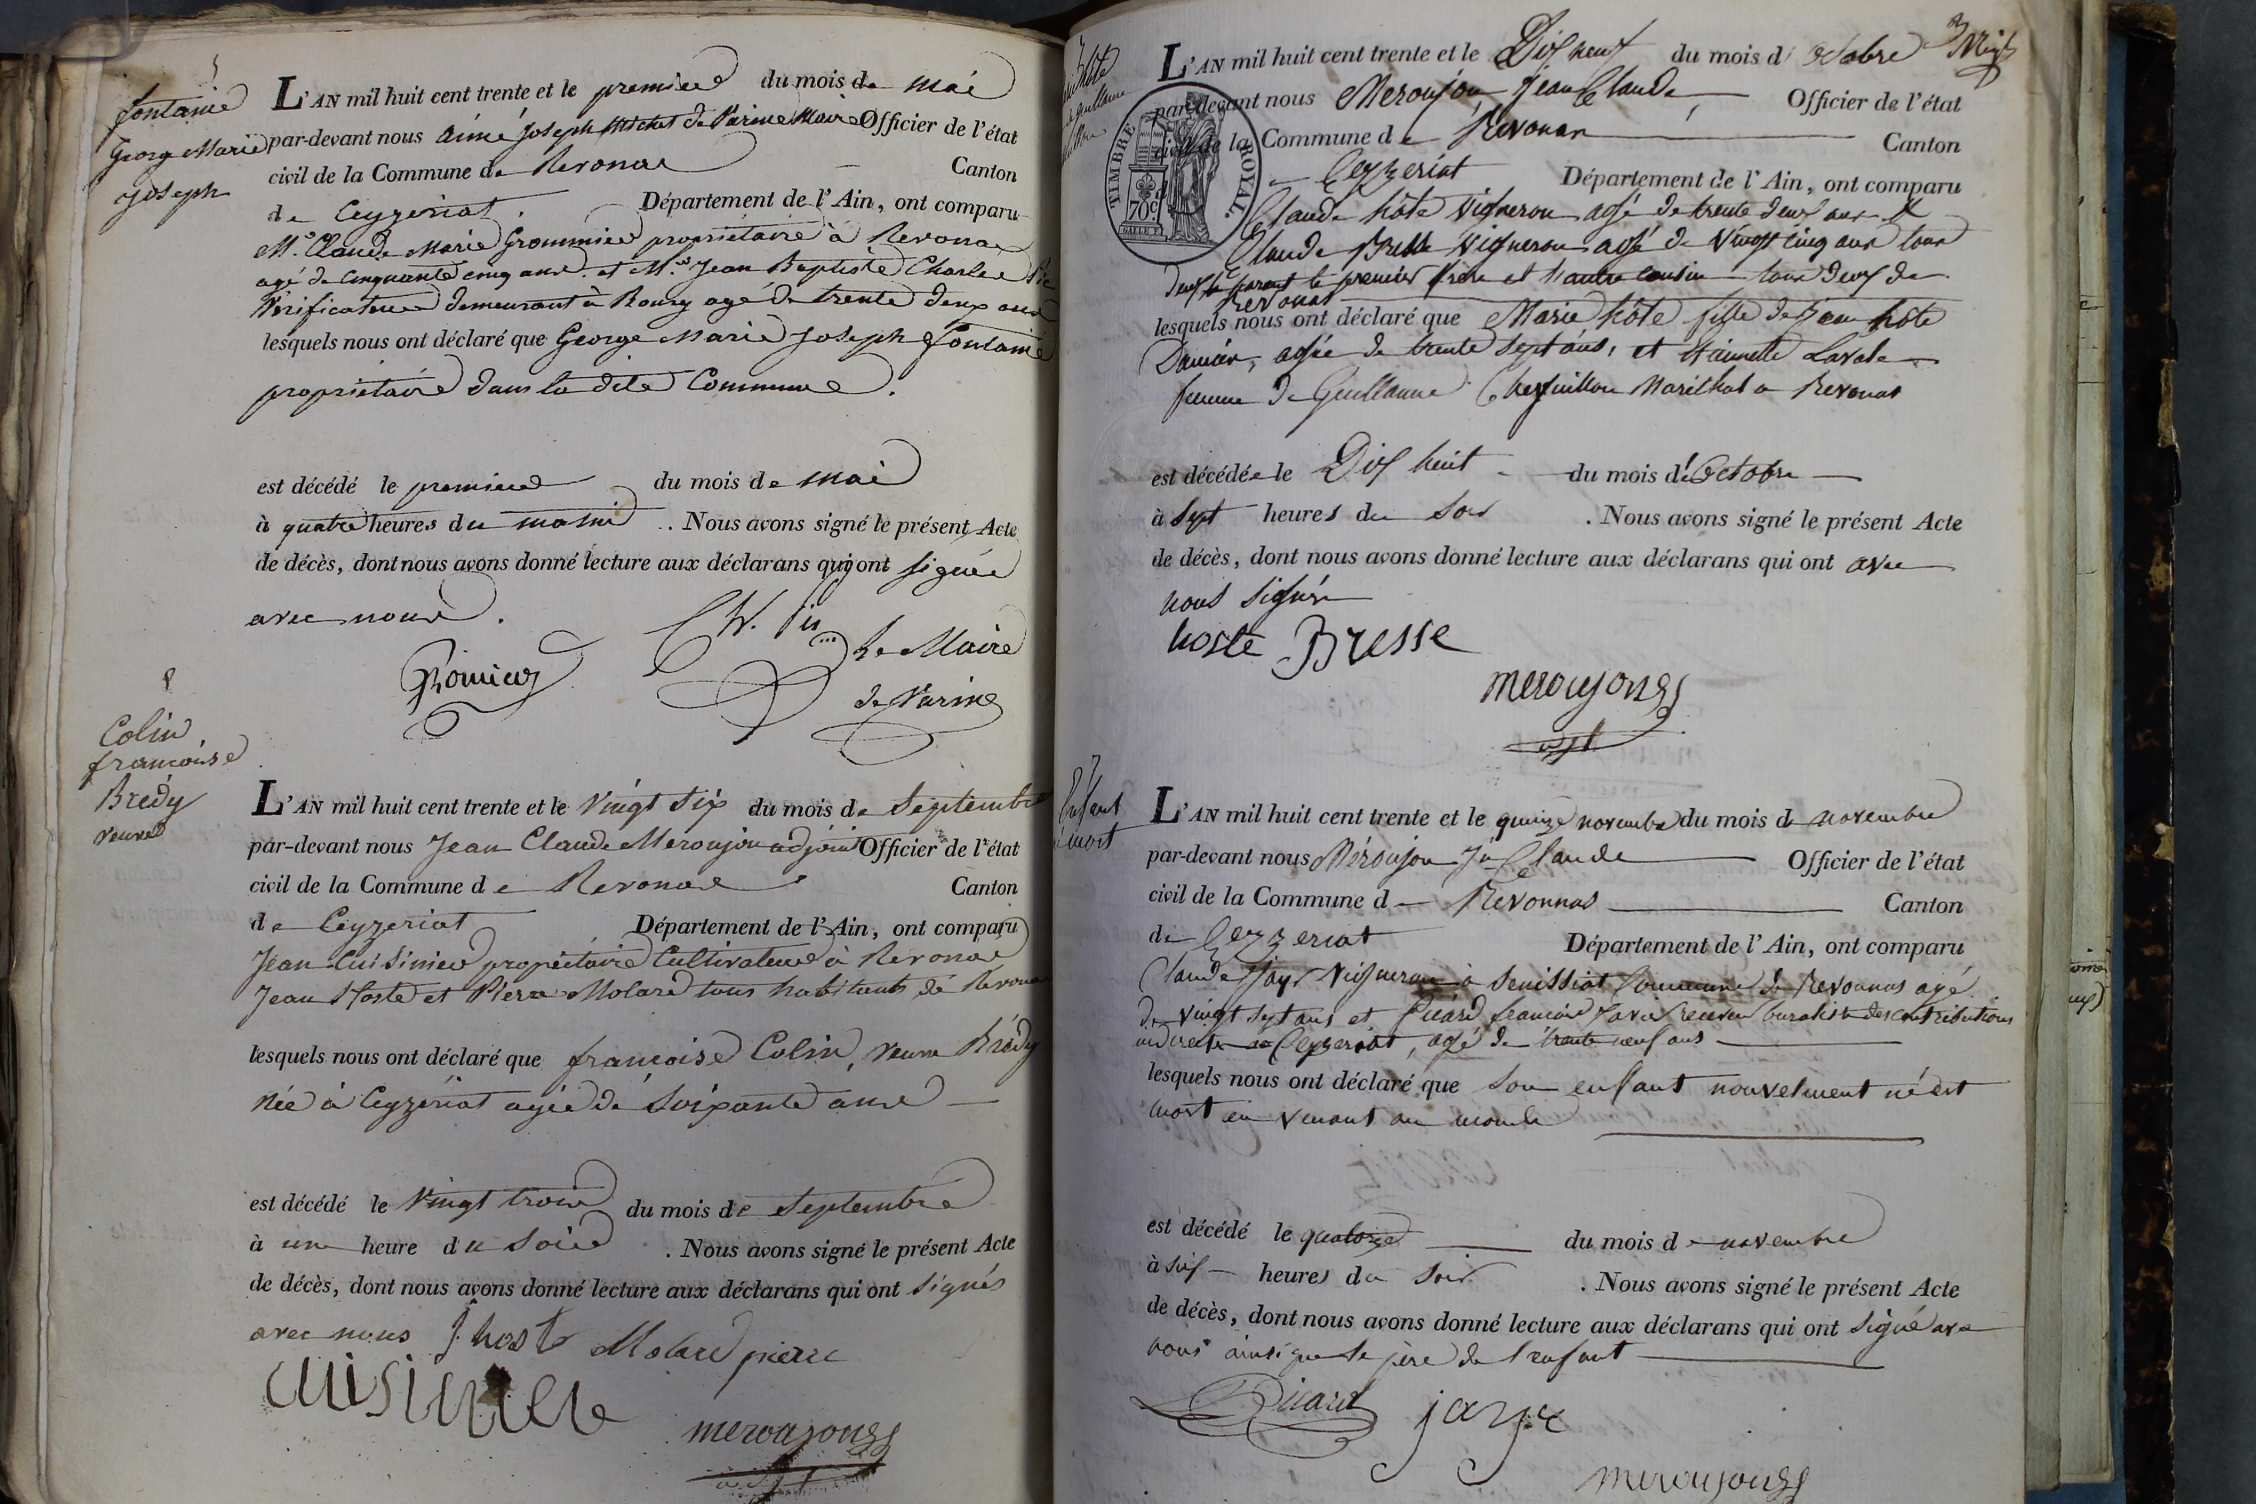 5
fontaine
George Marie
Joseph
L'AN mil huit cent trente et le premier du mois de mai
par-devant nous aimé Joseph Michel de Varine Maire Officier de l'état
civil de la Commune de Revonas Canton
de Ceyzeriat. Département de l'Ain, ont comparu
Mr. Claude Marie proprietaire à Revonas
agé de cinquante cinq ans. et Mr. Jean Baptiste Charles
Verificateur demeurant à Bourg agé de trente deux ans
lesquels nous ont déclaré que George Marie Joseph fontaine
propriétaire dans la dite Commune.
est décédé le premier du mois de mai
à quatre heures du matin .. Nous avons signé le présent Acte
de décès, dont nous avons donné lecture aux déclarans qui ont signé
avec nous.
Le Maire
de Varine
8
Colin
francoise
Bredy
veuve
L'AN mil huit cent trente et le vingt six du mois de Septembre
par-devant nous Jean Claude Meroujon adjoint Officier de l'état
civil de la Commune de Revonas Canton
de Ceyzeriat Département de l'Ain, ont comparu
Jean Cuisinier propriétaire Cultivateur à Revonas
Jean Hoste et Pierre Molard tous habitants de Revonas
lesquels nous ont déclaré que francoise Colin, veuve Brédy
née à Ceyzériat agée de soixante ans
est décédé le vingt trois du mois de Septembre
à une heure du soir . Nous avons signé le présent Acte
de décès, dont nous avons donné lecture aux déclarans qui ont signés
avec nous J. hoste Molard pierre
cuisinier
meroujong
L'AN mil huit cent trente et le Dix neuf du mois d'octobre
par-devant nous Meroujon Jean Claude Officier de l'état
civil de la Commune de Revonas Canton
Ceyzeriat Département de l'Ain, ont comparu
TIMBRE ROYAL.
70c
Claude hôte Vigneron agé de trente deux ans et
Claude Bresse Vigneron agé de Vingt cinq ans tous
deux parent le premier frère et l'autre cousin tous deux de
Revonas
lesquels nous ont déclaré que Marie hôte fille de Jean hôte
Damien, agée de trente sept ans, et Lavale
femme de Guillaume Marechal a Revonas
est décédée le Dix huit du mois d'Octobre
à sept heures du soir . Nous avons signé le présent Acte
de décès, dont nous avons donné lecture aux déclarans qui ont avec
nous signé
hoste Bresse
meroujong
Enfant
mort
L'AN mil huit cent trente et le quinze novembre du mois de novembre
par-devant nous Méroujon Jn Claude Officier de l'état
civil de la Commune d Revonnas Canton
de Ceyzeriat Département de l'Ain, ont comparu
Claude Jayr Vigneron à Senissiat Commune de Revonnas agé
de vingt sept ans et Picard francois Xavier receveur buraliste des contributions
indirectes a Ceyzeriat, agé de trente neuf ans
lesquels nous ont déclaré que son enfant nouvelment né est
mort en venant au monde
est décédé le quatorze du mois de novembre
à six heures du soir . Nous avons signé le présent Acte
de décès, dont nous avons donné lecture aux déclarans qui ont signé avec
nous ainsi que le père de l'enfant
Picard jayr
meroujong